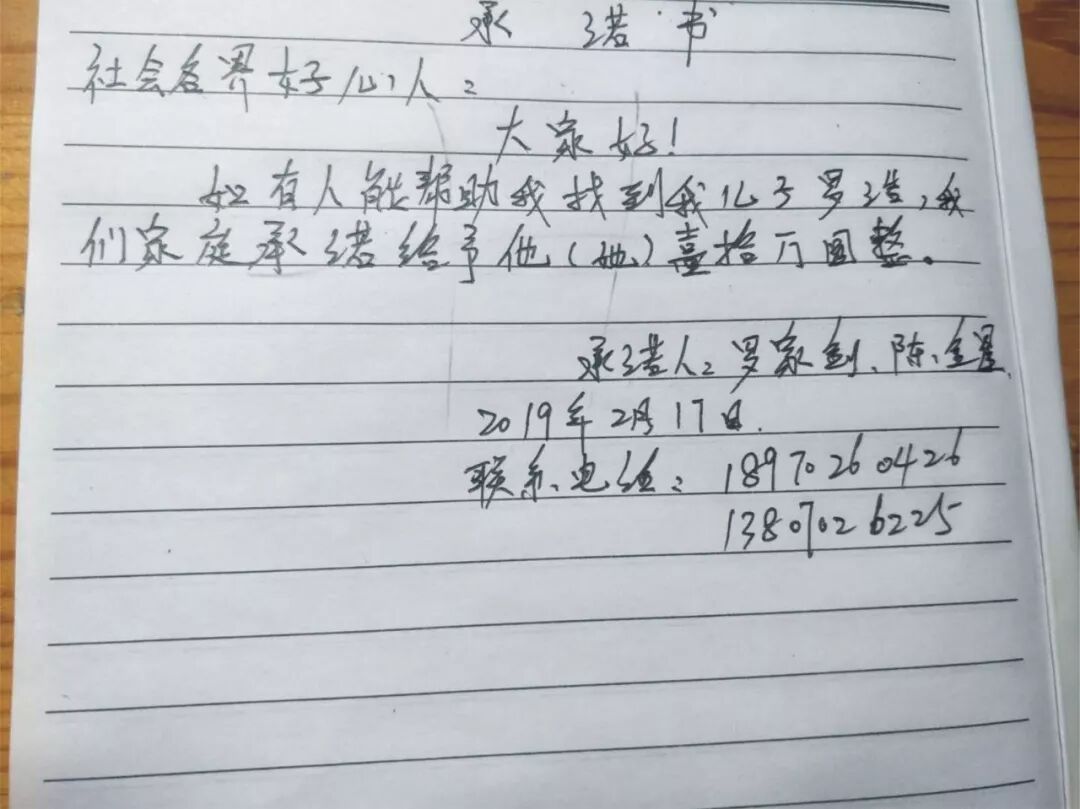 承诺书
社会各界好心人：
大家好！
如有人能帮助我找到我儿子罗浩，我
们家庭承诺给予他（她）壹拾万圆整。
承诺人：罗家剑、陈金星
2019年2月17日.
联系电话：18970260426
13807026225